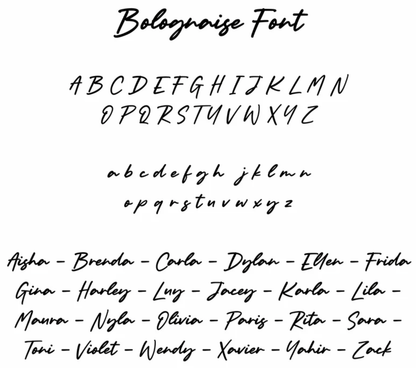 Bolognaise Font
A B C D E F G H I J K L M N
O P Q R S T U V W X Y Z
a b c d e f g h j k l m n
o p q r s t u v w x y z
Aisha - Brenda - Carla - Dylan - Ellen - Frida
Gina - Harley - Luy - Jacey - Karla - Lila -
Maura - Nyla - Olivia - Paris - Rita - Sara -
Toni - Violet - Wendy - Xavier - Yahir - Zack